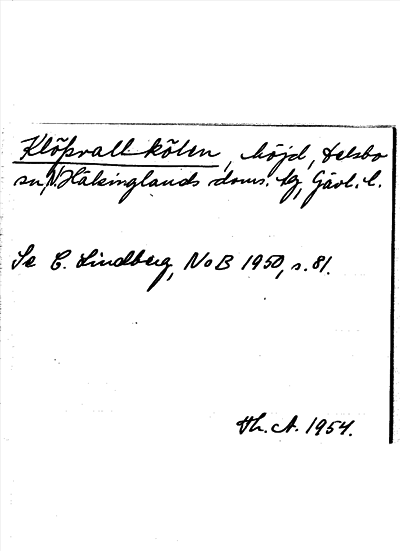 Klöpvallkölen, höjd, Delsbo
sn, N. Hälsinglands doms. tg, Gävl. l.
Se C. Lindberg, NoB 1950, s. 81.
Th. A. 1954.